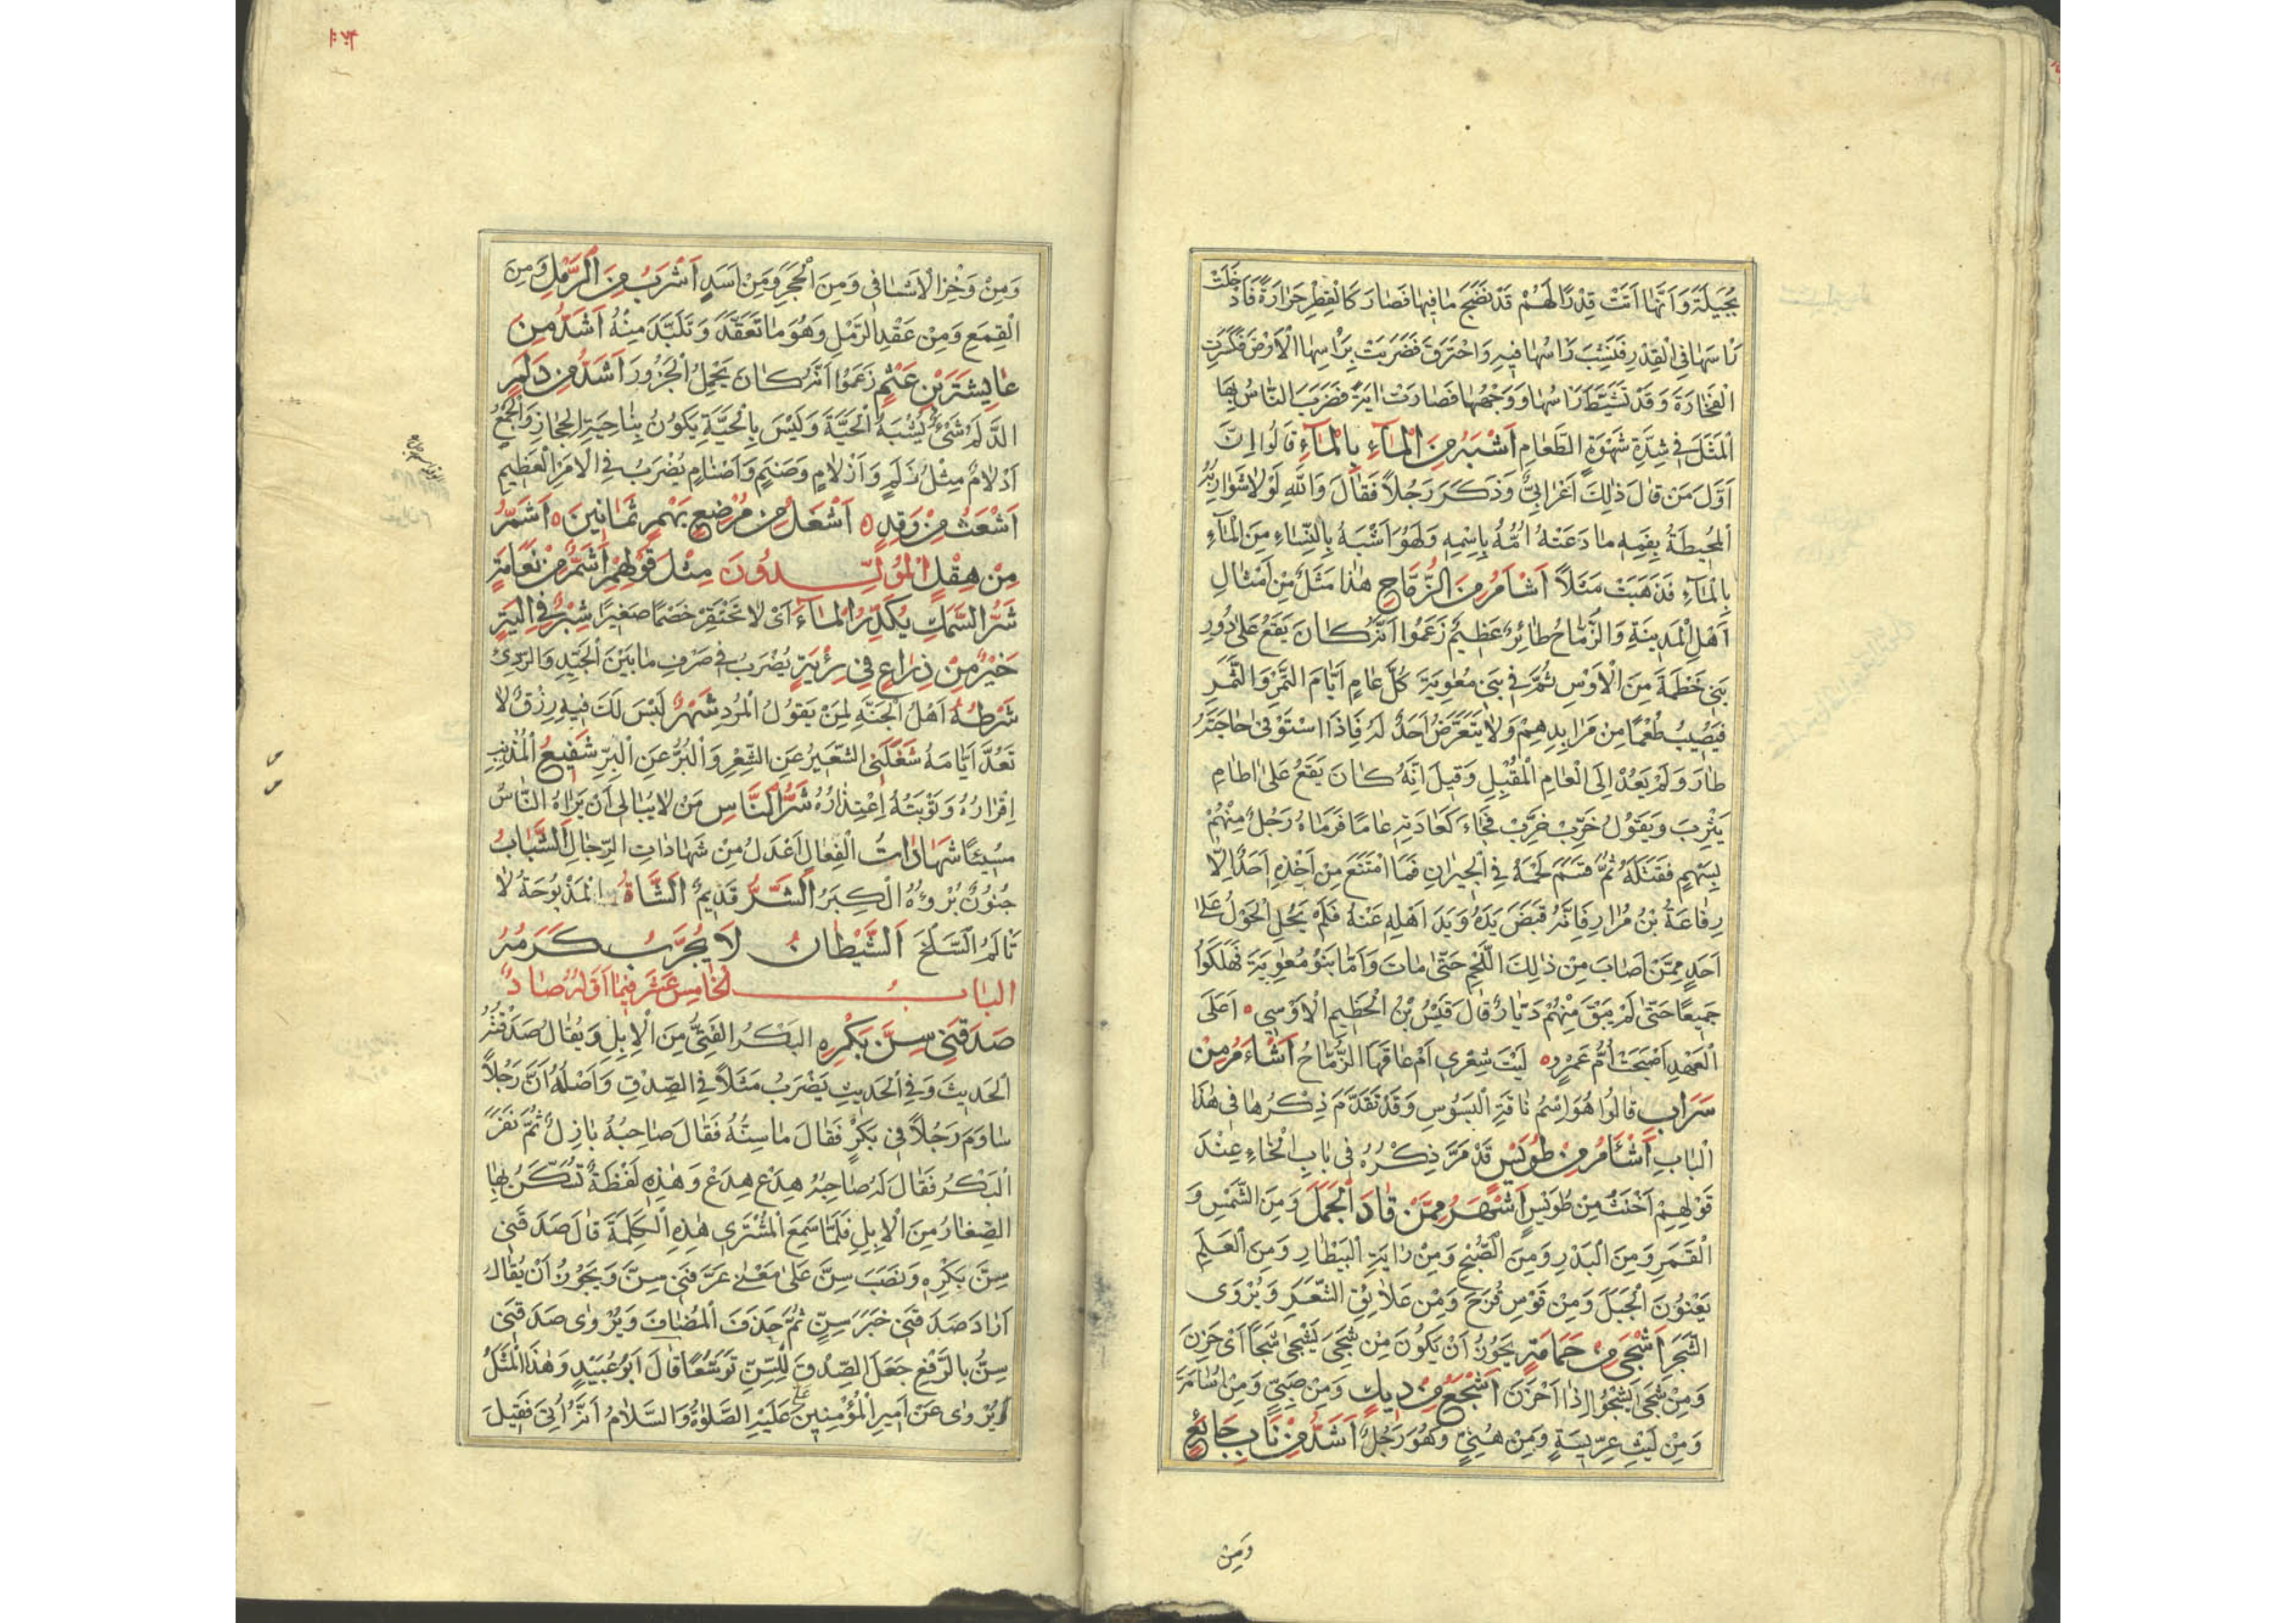 بُجَيْلَةَ وَاَنَّهَا اَتَتْ قِدْرًا لَهُمْ قَدْ نَضَجَ مَا فِيهَا فَصَارَ كَالْقِطْرِ حَرَارَةً فَأَدْخَلَتْ
رَأْسَهَا فِي الْقِدْرِ فَنَشِبَ رَأْسُهَا فِيهِ وَاحْتَرَقَ فَضَرَبَتْ بِرَأْسِهَا الْاَرْضَ فَكَسَرَتِ
الْفَخَّارَةَ وَقَدْ تَشَيَّطَ رَأْسُهَا وَوَجْهُهَا فَصَارَتْ اٰيَةً فَضَرَبَ النَّاسُ بِهَا
الْمَثَلَ فِي شِدَّةِ شَهْوَةِ الطَّعَامِ اَشْبَهُ مِنَ الْمَآءِ بِالْمَآءِ قَالُوا اِنَّ
اَوَّلَ مَنْ قَالَ ذٰلِكَ اَعْرَابِيٌّ وَذَكَرَ رَجُلًا فَقَالَ وَاللّٰهِ لَوْلَا شَوَارِبُهُ
الْمُحِيطَةُ بِفَمِهِ مَا دَعَتْهُ اُمُّهُ بِاسْمِهِ وَلَهُوَ اَشْبَهُ بِالنِّسَاءِ مِنَ الْمَآءِ
بِالْمَآءِ فَذَهَبَتْ مَثَلًا اَشْأَمُ مِنَ الزُّمَّاحِ هٰذَا مَثَلٌ مِنْ اَمْثَالِ
اَهْلِ الْمَدِينَةِ وَالزُّمَّاحُ طَائِرٌ عَظِيمٌ زَعَمُوا اَنَّهُ كَانَ يَقَعُ عَلَى دُورِ
بَنِي خَطْمَةَ مِنَ الْاَوْسِ ثُمَّ فِي بَنِي مُعٰوِيَةَ كُلَّ عَامٍ اَيَّامَ التَّمْرِ وَالثَّمَرِ
فَيُصِيبُ طُعْمًا مِنْ مَرَابِدِهِمْ وَلَا يَتَعَرَّضُ اَحَدٌ لَهُ فَاِذَا اسْتَوْفَى حَاجَتَهُ
طَارَ وَلَمْ يَعُدْ اِلَى الْعَامِ الْمُقْبِلِ وَقِيلَ اِنَّهُ كَانَ يَقَعُ عَلَى اٰطَامِ
يَثْرِبَ وَيَقُولُ خَرِّبْ خَرِّبْ فَجَاءَ كَعَادَتِهِ عَامًا فَرَمَاهُ رَجُلٌ مِنْهُمْ
بِسَهْمٍ فَقَتَلَهُ ثُمَّ قَسَمَ لَحْمَهُ فِي الْجِيرَانِ فَمَا امْتَنَعَ مِنْ اَخْذِهِ اَحَدٌ اِلَّا
رِفَاعَةُ بْنُ مُرَارٍ فَاِنَّهُ قَبَضَ يَدَهُ وَيَدَ اَهْلِهِ عَنْهُ فَلَمْ يَحُلِ الْحَوْلُ عَلَى
اَحَدٍ مِمَّنْ اَصَابَ مِنْ ذٰلِكَ اللَّحْمِ حَتَّى مَاتَ وَاَمَّا بَنُو مُعٰوِيَةَ فَهَلَكُوا
جَمِيعًا حَتَّى لَمْ يَبْقَ مِنْهُمْ دَيَّارٌ قَالَ قَيْسُ بْنُ الْخَطِيمِ الْاَوْسِي ٥ اَعَلَى
الْعَهْدِ اَصْبَحَتْ اُمُّ عَمْرٍو ٥ لَيْتَ شِعْرِي اَمْ عَاقَهَا الزُّمَّاحُ اَشْأَمُ مِنْ
سَرَابِ قَالُوا هُوَ اِسْمُ نَاقَةِ الْبَسُوسِ وَقَدْ تَقَدَّمَ ذِكْرُهَا فِي هٰذَا
الْبَابِ اَشْأَمُ مِنْ طُوَيْسٍ قَدْ مَرَّ ذِكْرُهُ فِي بَابِ الْخَاءِ عِنْدَ
قَوْلِهِمْ اَخْنَثُ مِنْ طُوَيْسٍ اَشْهَرُ مِمَّنْ قَادَ الْجَمَلَ وَمِنَ الشَّمْسِ وَ
الْقَمَرِ وَمِنَ الْبَدْرِ وَمِنَ الصُّبْحِ وَمِنْ رَايَةِ الْبَيْطَارِ وَمِنَ الْعَلَمِ
يَعْنُونَ الْجَبَلَ وَمِنْ قَوْسِ قُزَحَ وَمِنْ عَلَائِقِ الشَّعَرِ وَيُرْوَى
الشَّجَرِ اَشْجَى مِنْ حَمَامَةٍ يَجُوزُ اَنْ يَكُونَ مِنْ شَجِيَ يَشْجَى شَجًا اَيْ حَزِنَ
وَمِنْ شَجَى يَشْجُو اِذَا اَحْزَنَ اَشْجَعُ مِنْ دِيكٍ وَمِنْ صَبِيٍّ وَمِنْ اُسَامَةَ
وَمِنْ لَيْثِ عِرِّيسَةٍ وَمِنْ هُنَيٍّ وَهُوَ رَجُلٌ اَشَدُّ مِنْ نَابِ جَائِعٍ
وَمِنْ
١٧٤
وَمِنْ وَخْزِ الْاَشَافِي وَمِنَ الْحَجَرِ وَمِنْ اَسَدٍ اَشْرَبُ مِنَ الرَّمْلِ وَمِنَ
الْقِمَعِ وَمِنْ عَقْدِ الرَّمْلِ وَهُوَ مَا تَعَقَّدَ وَتَلَبَّدَ مِنْهُ اَشَدُّ مِنْ
عَايِشَةَ بْنِ عَثْمٍ زَعَمُوا اَنَّهُ كَانَ يَحْمِلُ الْجَزُورَ اَشَدُّ مِنْ دَلَمٍ
الدَّلَمُ شَيْءٌ يُشْبِهُ الْحَيَّةَ وَلَيْسَ بِالْحَيَّةِ يَكُونُ بِنَاحِيَةِ الْحِجَازِ وَالْجَمْعُ
اَدْلَامٌ مِثْلُ زَلَمٍ وَاَزْلَامٍ وَصَنَمٍ وَاَصْنَامٍ يُضْرَبُ فِي الْاَمْرِ الْعَظِيمِ
اَشْعَثُ مِنْ وَتِدٍ ٥ اَشْغَلُ مِنْ مُرْضِعِ بَهْمٍ ثَمَانِينَ ٥ اَشَمُّ
مِنْ هِقْلٍ الْمُوَلَّدُونَ مِثْلَ قَوْلِهِمْ اَشَمُّ مِنْ نَعَامَةٍ
شَرُّ السَّمَكِ يُكَدِّرُ الْمَآءَ اَيْ لَا تَحْتَقِرْ خَصْمًا صَغِيرًا شِبْرٌ فِي اَلْيَةٍ
خَيْرٌ مِنْ ذِرَاعٍ فِي رِئَةٍ يُضْرَبُ فِي صَرْفِ مَا بَيْنَ الْجَيِّدِ وَالرَّدِيِّ
شَرْطُهُ اَهْلُ الْجَنَّةِ لِمَنْ يَقُولُ الْمُرْدِ شَهْرٌ لَيْسَ لَكَ فِيهِ رِزْقٌ لَا
تَعُدَّ اَيَّامَهُ شَغَلَنِي الشَّعِيرُ عَنِ الشِّعْرِ وَالْبُرُّ عَنِ الْبِرِّ شَفِيعُ الْمُذْنِبِ
اِقْرَارُهُ وَتَوْبَتُهُ اِعْتِذَارُهُ شَرُّ النَّاسِ مَنْ لَا يُبَالِي اَنْ يَرَاهُ النَّاسُ
مُسِيْئًا شَهَادَاتُ الْفِعَالِ اَعْدَلُ مِنْ شَهَادَاتِ الرِّجَالِ اَلشَّبَابُ
جُنُونٌ بُرْؤُهُ الْكِبَرُ اَلشَّرُّ قَدِيمٌ اَلشَّاةُ الْمَذْبُوحَةُ لَا
تَأْلَمُ السَّلْخَ اَلشَّيْطَانُ لَا يُخَرِّبُ كَرْمَهُ
الْبَابُ الْخَامِسَ عَشَرَ فِيمَا اَوَّلُهُ صَادٌ
صَدَقَنِي سِنَّ بَكْرِهِ الْبَكْرُ الْفَتِيُّ مِنَ الْاِبِلِ وَيُقَالُ صَدَقْتُهُ
الْحَدِيثَ وَفِي الْحَدِيثِ يُضْرَبُ مَثَلًا فِي الصِّدْقِ وَاَصْلُهُ اَنَّ رَجُلًا
سَاوَمَ رَجُلًا فِي بَكْرٍ فَقَالَ مَا سِنُّهُ فَقَالَ صَاحِبُهُ بَازِلٌ ثُمَّ نَفَرَ
الْبَكْرُ فَقَالَ لَهُ صَاحِبُهُ هِدَعْ هِدَعْ وَهٰذِهِ لَفْظَةٌ تُسَكَّنُ بِهَا
الصِّغَارُ مِنَ الْاِبِلِ فَلَمَّا سَمِعَ الْمُشْتَرِي هٰذِهِ الْكَلِمَةَ قَالَ صَدَقَنِي
سِنَّ بَكْرِهِ وَنَصَبَ سِنَّ عَلَى مَعْنَى عَرَّفَنِي سِنَّ وَيَجُوزُ اَنْ يُقَالَ
اَرَادَ صَدَقَنِي خَبَرَ سِنٍّ ثُمَّ حَذَفَ الْمُضَافَ وَيُرْوٰى صَدَقَنِي
سِنُّ بِالرَّفْعِ جَعَلَ الصِّدْقَ لِلسِّنِّ تَوَسُّعًا قَالَ اَبُو عُبَيْدٍ وَهٰذَا الْمَثَلُ
يُرْوٰى عَنْ اَمِيرِ الْمُؤْمِنِينَ عَلِيٍّ عَلَيْهِ الصَّلٰوةُ وَالسَّلَامُ اَنَّهُ اُتِيَ فَقِيلَ